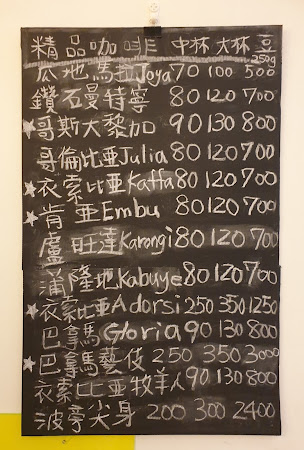 精品咖啡 中杯 大杯 豆 250g
瓜地馬拉Joya 70 100 500
鑽石曼特寧 80 120 700
★哥斯大黎加 90 130 800
哥倫比亞Julia 80 120 700
★衣索比亞Kaffa 80 120 700
★肯亞Embu 80 120 700
盧旺達Karongi 80 120 700
蒲隆地Kabuye 80 120 700
★衣索比亞Adorsi 250 350 1250
巴拿馬Gloria 90 130 800
★巴拿馬藝伎 250 350 3000
衣索比亞牧羊人 90 130 800
波旁尖身 200 300 2400